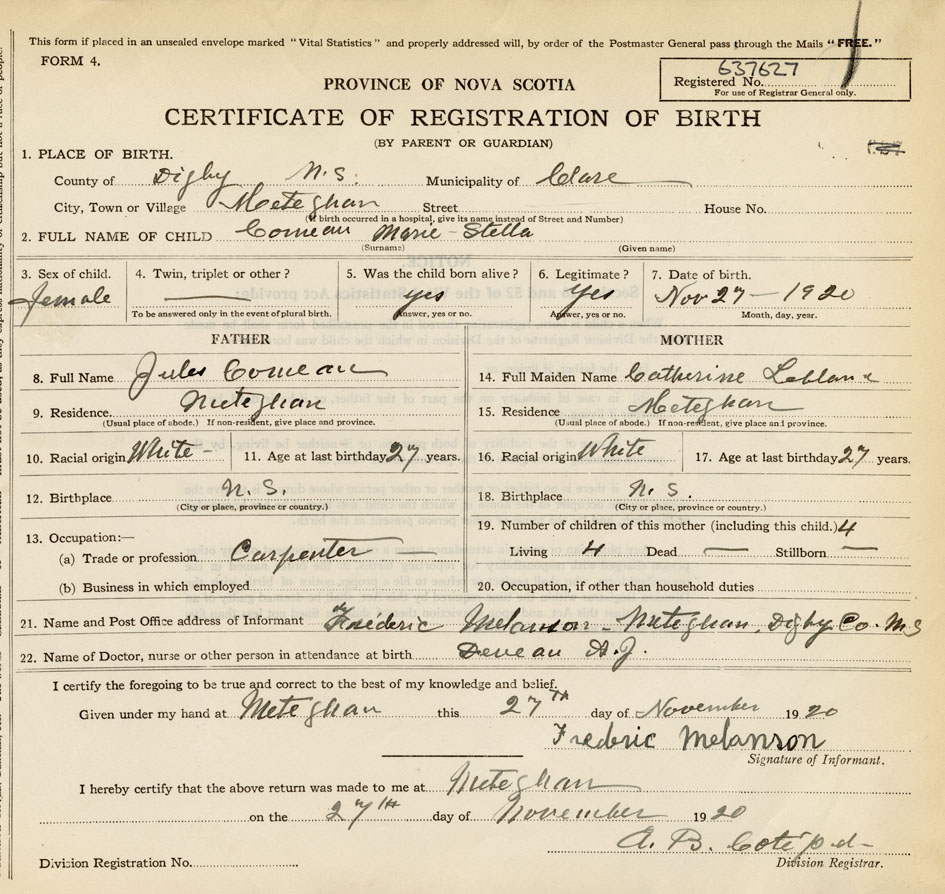 This form if placed in an unsealed envelope marked "Vital Statistics" and properly addressed will, by order of the Postmaster General pass through the Mails "FREE."
FORM 4.
637627
Registered No.
For use of Registrar General only.
PROVINCE OF NOVA SCOTIA
CERTIFICATE OF REGISTRATION OF BIRTH
(BY PARENT OR GUARDIAN)
1. PLACE OF BIRTH.
County of Digby N.S. Municipality of Clare
City, Town or Village Meteghan Street House No.
(If birth occurred in a hospital, give its name instead of Street and Number)
2. FULL NAME OF CHILD Comeau Marie-Stella
(Surname) (Given name)
3. Sex of child. 4. Twin, triplet or other? 5. Was the child born alive? 6. Legitimate? 7. Date of birth.
female yes yes Nov 27 - 1920
To be answered only in the event of plural birth. Answer, yes or no. Answer, yes or no. Month, day, year.
FATHER MOTHER
8. Full Name Jules Comeau 14. Full Maiden Name Catherine Leblanc
9. Residence. Meteghan 15. Residence Meteghan
(Usual place of abode.) If non-resident, give place and province. (Usual place of abode.) If non-resident, give place and province.
10. Racial origin White - 11. Age at last birthday 27 years. 16. Racial origin White 17. Age at last birthday 27 years.
12. Birthplace N.S. 18. Birthplace N.S.
(City or place, province or country.) (City or place, province or country.)
13. Occupation:— 19. Number of children of this mother (including this child.) 4
(a) Trade or profession Carpenter Living 4 Dead — Stillborn —
(b) Business in which employed 20. Occupation, if other than household duties
21. Name and Post Office address of Informant Frederic Melanson - Meteghan, Digby Co. N.S
22. Name of Doctor, nurse or other person in attendance at birth Deveau A.J.
I certify the foregoing to be true and correct to the best of my knowledge and belief.
Given under my hand at Meteghan this 27th day of November 1920
Frederic Melanson
Signature of Informant.
I hereby certify that the above return was made to me at Meteghan
on the 27th day of November 1920
A. B.
Division Registration No. Division Registrar.